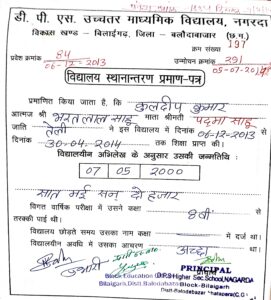 डी. पी. एस. उच्चतर माध्यमिक विद्यालय, नगरदा
विकास खण्ड - बिलाईगढ़, जिला - बलौदाबाजार (छ.ग.)
क्रम संख्या 197
प्रवेश क्रमांक 84
उन्मोचन क्रमांक 291
06-12-2013
05-07-2014
विद्यालय स्थानान्तरण प्रमाण-पत्र
प्रमाणित किया जाता है, कि कुलदीप कुमार
आत्मज श्री भरतलाल साहू माता श्रीमती पदमा साहू
जाति तेली ने इस विद्यालय में दिनांक 06-12-2013 से
दिनांक 30-04-2014 तक शिक्षा प्राप्त की।
विद्यालयीन अभिलेख के अनुसार उसकी जन्मतिथि :
07 05 2000
सात मई सन् दो हजार
विगत वार्षिक परीक्षा में उसने कक्षा 8वीं से
तरक्की पाई थी।
विद्यालय छोड़ते समय उसका नाम कक्षा में दर्ज था।
विद्यालयीन अवधि में उसका आचरण अच्छा था।
PRINCIPAL
Block Education
DPS Higher Sec. School, NAGARDA
Bilaigarh, Distt. Balodabazar
Block-Bilaigarh
Distt-Balodabazar